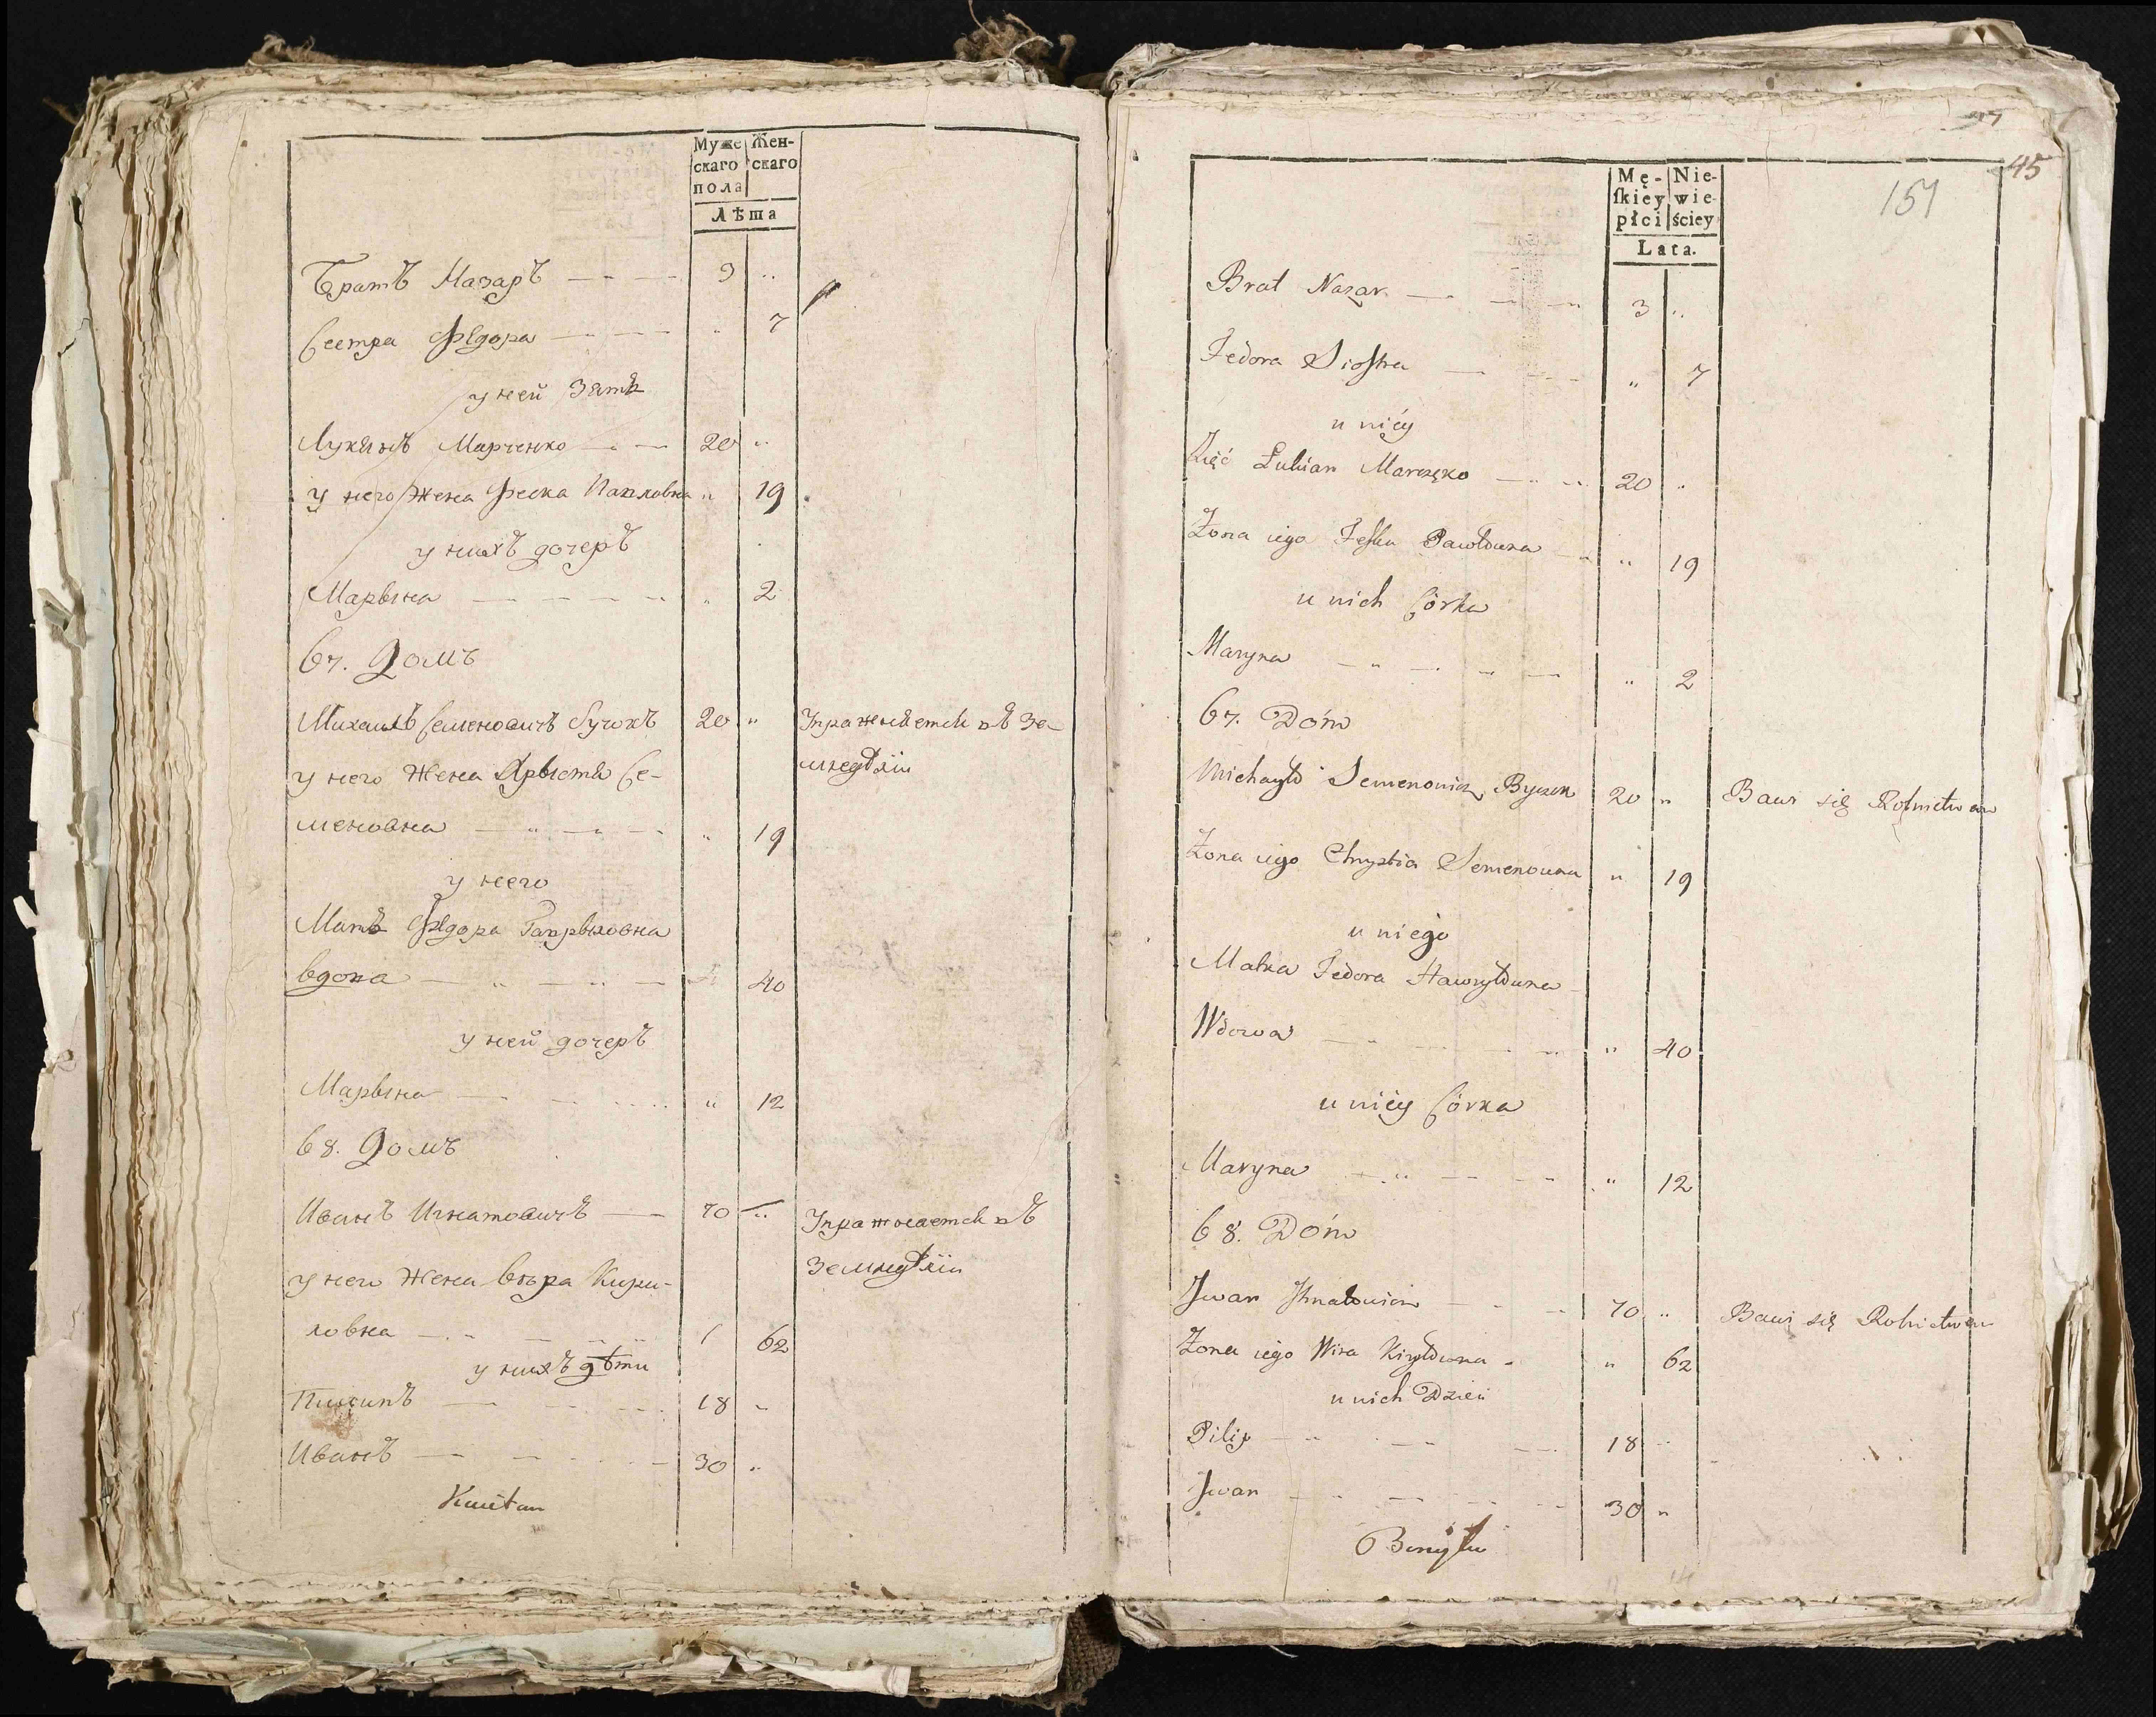 Муже Жен-
скаго скаго
пола
Лѣта
Братъ Назаръ 3 "
Сестра Федора " 7
у ней Зять
Лукянъ Марченко 20 "
у него Жена Феска Павловна " 19
у нихъ дочеръ
Марына " 2
67. Домъ
Михаилъ Семеновичъ Бучокъ 20 " Упраженяется въ Зе-
у него Жена Хрыстя Се- мледѣлiи
меновна " 19
у него
Мать Федора Гаврыловна
вдова " 40
у ней дочеръ
Марына " 12
68. Домъ
Иванъ Игнатовичъ 70 " Упражнается въ
у него Жена Вѣра Кири- Земледѣлiи
ловна 62
у нихъ дѣти
Пилипъ 18 "
Иванъ 30 "
37
45
151
Mę- Nie-
ſkiey wie-
płci ściey
Lata.
Brat Nazar 3 "
Fedora Siostra " 7
u nićy
Zięć Łukian Marczęko 20 "
Żona iego Feska Pawłowna " 19
u nich Córka
Maryna " 2
67. Dóm
Michayło Semenowicz Byczek 20 " Bawi się Rolnictwem
Żona iego Chrystia Semenowna " 19
u niego
Matka Fedora Hawryłowna
Wdowa " 40
u nićy Córka
Maryna " 12
68. Dóm
Jwan Ihnatowicz 70 " Bawi się Rolnictwem
Żona iego Wira Kiryłowna " 62
u nich Dzieci
Pilip 18 "
Jwan 30 "